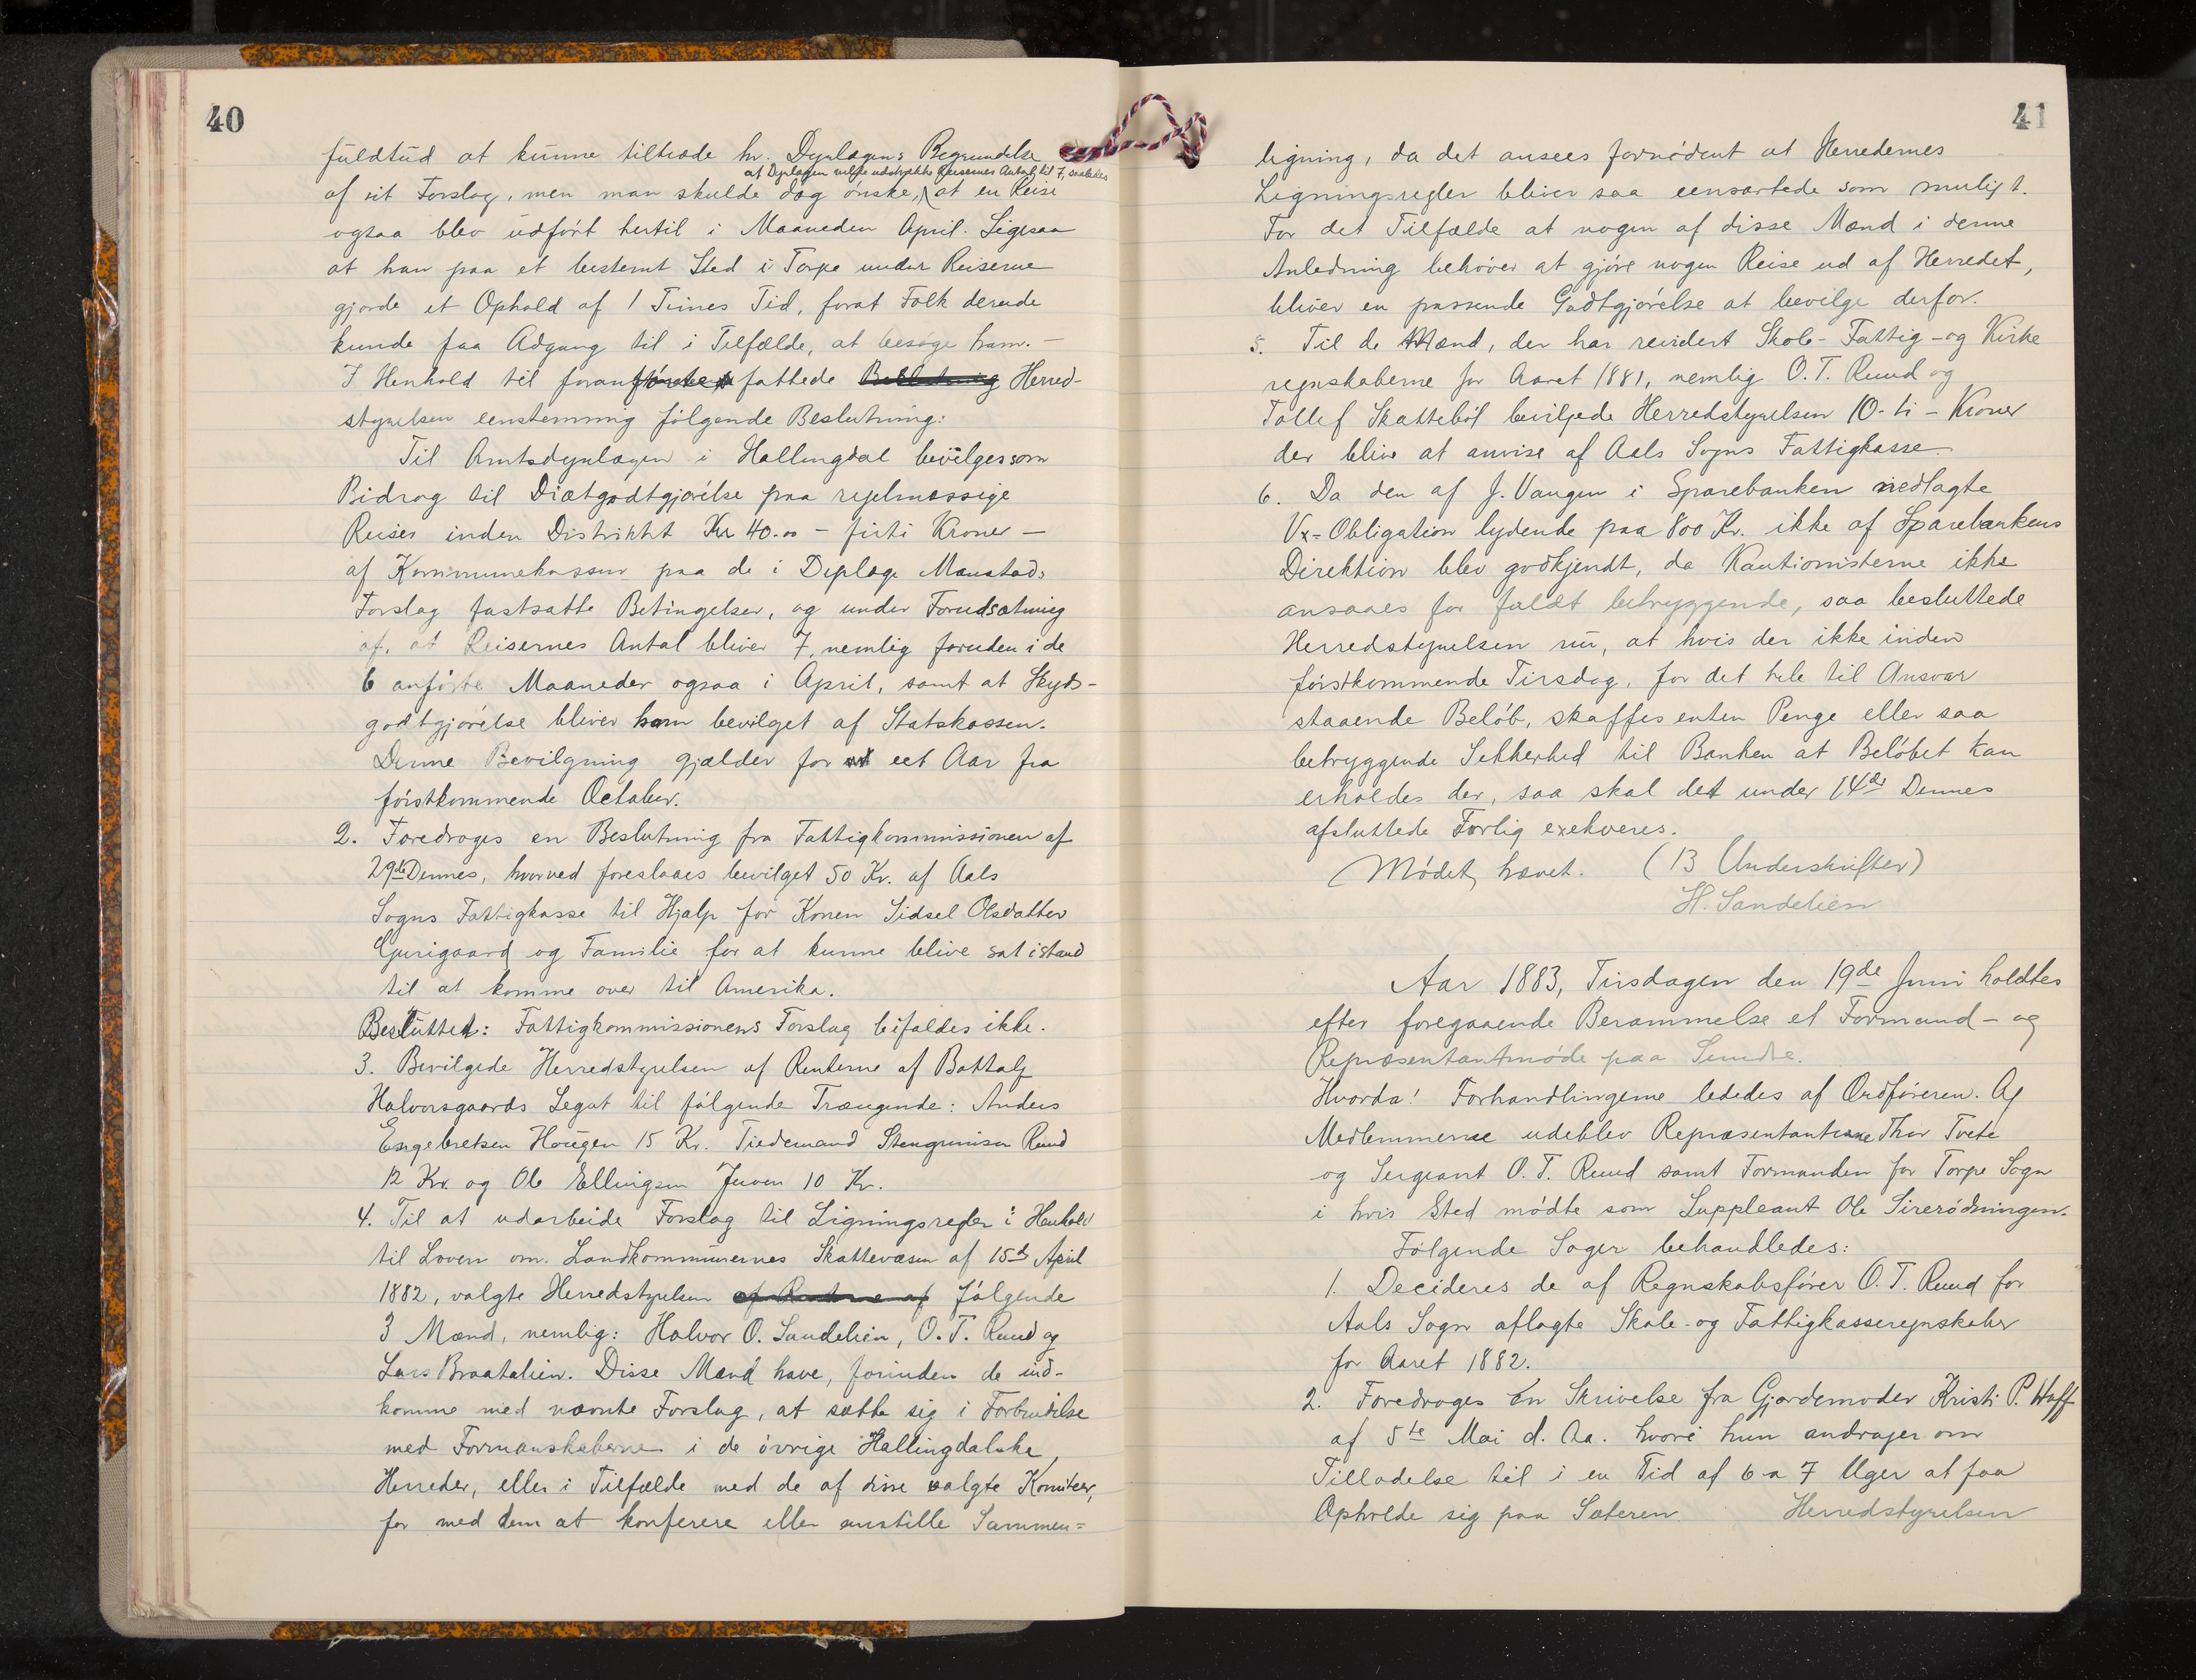 40
fuldtud at kunne tiltræde hr. Dyrlægens Begrundelse
at Dyrlægen vilde udstrække Reisernes Antal til 7, saaledes
af sit Forslag, men man skulde dog ønske, at en Reise
ogsaa blev udført hertil i Maaneden April. Ligesaa
at han paa et bestemt Sted i Torpe under Reiserne
gjorde et Ophold af 1 Times Tid, forat Folk derude
kunde faa Adgang til i Tilfælde, at besøge ham. —
I Henhold til foranførte fattede Beslutning Herred-
styrelsen eenstemmig følgende Beslutning:
Til Amtsdyrlægen i Hallingdal bevilges som
Bidrag til Diætgodtgjørelse paa regelmæssige
Reiser inden Distriktet Kr 40.00 – firti Kroner —
af Kommunekassen paa de i Dyrlæge Mønstads
Forslag fastsatte Betingelser, og under Forudsætning
af, at Reisernes Antal bliver 7, nemlig foruden i de
6 anførte Maaneder ogsaa i April, samt at Skyds-
godtgjørelse bliver ham bevilget af Statskassen.
Denne Bevilgning gjælder for et eet Aar fra
førstkommende October.
2. Foredroges en Beslutning fra Fattigkommissionen af
29de Dennes, hvorved foreslaaes bevilget 50 Kr. af Aals
Sogns Fattigkasse til Hjælp for Konen Sidsel Olsdatter
Gurigaard og Familie for at kunne blive sat istand
til at komme over til Amerika.
Besluttet: Fattigkommissionens Forslag bifaldes ikke.
3. Bevilgede Herredstyrelsen af Renterne af Bottolf
Halvorsgaards Legat til følgende Trængende: Anders
Engebretsen Hougen 15 Kr. Tiedemand Stengrimsen Ruud
12 Kr. og Ole Ellingsen Juven 10 Kr.
4. Til at udarbeide Forslag til Ligningsregler i Henhold
til Loven om Landkommunernes Skattevæsen af 15de April
1882, valgte Herredstyrelsen af Renterne af følgende
3 Mænd, nemlig: Halvor O. Sundelien, O. T. Ruud og
Lars Braatalien. Disse Mænd have, forinden de ind-
komme med nævnte Forslag, at sætte sig i Forbindelse
med Formanskaberne i de øvrige Hallingdalske
Herreder, eller i Tilfælde med de af disse valgte Komiteer,
for med dem at konferere eller anstille Sammen=
41
ligning, da det ansees fornødent at Herredernes
Ligningsregler bliver saa eensartede som muligt.
For det Tilfælde at nogen af disse Mænd i denne
Anledning behøver at gjøre nogen Reise ud af Herredet,
bliver en passende Godtgjørelse at bevilge derfor.
5. Til de Mænd, der har revidert Skole- Fattig- og Kirke
regnskaberne for Aaret 1881, nemlig O. T. Ruud og
Tollef Skattebøl bevilgede Herredstyrelsen 10 - ti – Kroner
der blive at anvise af Aals Sogns Fattigkasse.
6. Da den af J. Vangen i Sparebanken nedlagte
Vx-Obligation lydende paa 800 Kr. ikke af Sparebankens
Direktion blev godkjendt, da Kautionisterne ikke
ansaaes for fuldt betryggende, saa besluttede
Herredstyrelsen nu, at hvis der ikke inden
førstkommende Tirsdag, for det hele til Ansvar
staaende Beløb, skaffes enten Penge eller saa
betryggende Sikkerhed til Banken at Beløbet kan
erholdes der, saa skal det under 14de Dennes
afsluttede Forlig exekveres.
Mødet hævet. (13 Underskrifter)
H. Sandelien
Aar 1883, Tirsdagen den 19de Juni holdtes
efter foregaaende Berammelse et Formand- og
Repræsentantmøde paa Sundre.
Hvorda! Forhandlingerne lededes af Ordføreren. Af
Medlemmerne udeblev Repræsentanterne Thor Tvete
og Sergeant O. T. Ruud samt Formanden for Torpe Sogn
i hvis Sted mødte som Suppleant Ole Sirerødningen.
Følgende Sager behandledes:
1. Decideres de af Regnskabsfører O. T. Ruud for
Aals Sogn aflagte Skole- og Fattigkasseregnskaber
for Aaret 1882.
2. Foredroges en Skrivelse fra Gjordemoder Kristi P. Hoff
af 5te Mai d. Aa. hvori hun andrager om
Tilladelse til i en Tid af 6 a 7 Uger at faa
Opholde sig paa Sæteren. Herredstyrelsen